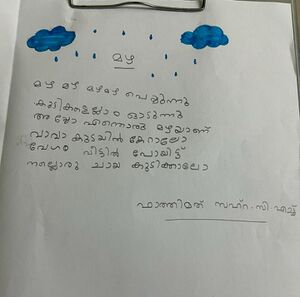 മഴ
മഴ മഴ മഴമഴ പെയ്യുന്നു
കുട്ടികളെല്ലാം ഓടുന്നു
അയ്യോ എന്തൊരു മഴയാണ്
വാവാ കുടയിൽ കേറാലോ
വേഗം വീട്ടിൽ പോയിട്ട്
നല്ലൊരു ചായ കുടിക്കാലോ
ഫാത്തിമത് സഹ്റ.സി.എച്ച്